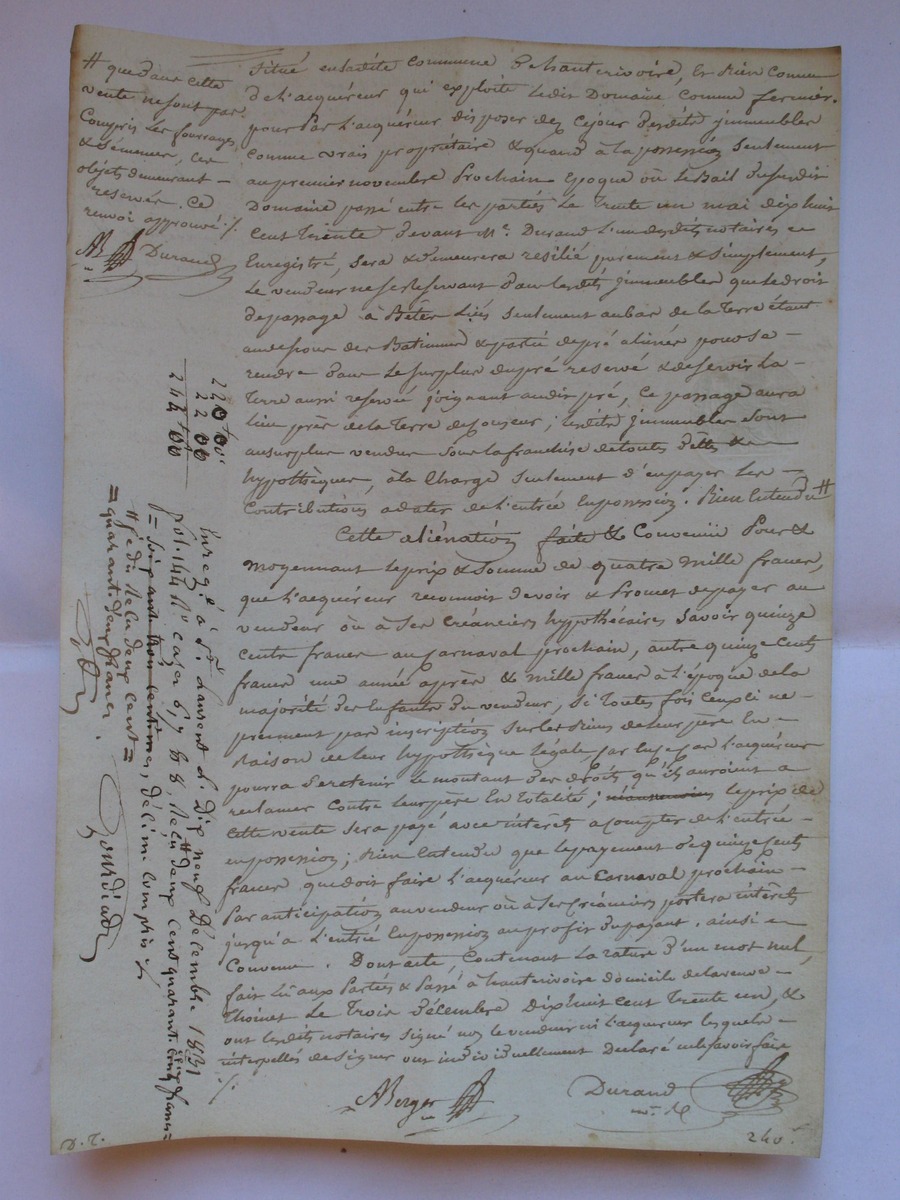 # que dans cette
vente ne sont pas
Compris les fourrages
& Semences, ces
objets demeurant —
reservés. Ce
renvoi approuvé ./.
AB Durand
situé en ladite commune de hauterivoire, et bien connu
de l'acquéreur qui exploite ledit Domaine comme fermier.
pour par l'acquéreur disposer dez cejour desdits jmmeubles
comme vrais propriétaire & quand à la possession seulement
au premier novembre Prochain Epoque où le Bail dususdit
Domaine passé entre les parties Le Trente un mai dix huit
Cent Trente devant Me. Durand l'un desdits notaires et
Enregistré, sera & demeurera résilié purement & simplement,
Le vendeur ne se reservant dans lesdits jmmeubles que le droit
de passage à Bêtes Liés seulement au bas de la Terre étant
au dessous des Batiments & partie de pré aliénée pour se —
rendre dans le surplus du pré reservé & desservir la —
Terre aussi reservée joignant audit pré, Ce passage aura
lieu près de la Terre de ; lesdits jmmeubles sont
au surplus vendus sous la franchise de toutes dettes & —
hypothèques, à la Charge seulement d'en payer les —
Contributions a dater de l'entrée En possession. Bien Entendu #
Cette aliénation faite & Convenüe Pour &
moyennant le prix & Somme de quatre mille francs,
que l'acquéreur reconnoit devoir & Promet de payer au
vendeur où à ses Créanciers hypothécaires Savoir quinze
Cents francs au Carnaval prochain, autre quinze Cents
francs une année après & mille francs à l'époque de la
majorité des Enfants du vendeur, Si Toutes fois Ceux ci ne —
prennent pas inscription sur les Biens de leur père En —
Raison de leur hypothèque légale, l'acquéreur
pourra retenir le montant des droits qu'ils auroient a
reclamer contre leur père En Totalité; le prix de
Cette vente sera payé avec intérêts a compter de l'entrée —
en possession; Bien Entendu que le payement de quinze Cents
francs que doit faire l'acquéreur au Carnaval prochain —
Par anticipation au vendeur où à ses Créanciers portera intérêts
jusqu'a l'entrée En possession au profit du payant, ainsi —
Convenu. Dont acte, Contenant la rature d'un mot nul,
fait Lu aux Parties & Passé à hauterivoire domicile de la veuve —
Thoinet Le Trois Décembre Dix huit Cent Trente un, &
ont lesdits notaires signé non le vendeur ni l'acquéreur lesquels —
interpellés de signer ont individuellement Declaré ne le savoir faire
./.
ABerger
Durand
nre. Rl
240.
D. T.
220 "00
22 00
244 "00
Enregé à St. Laurent le Dix neuf Décembre 1831
fol. 144 Ro. cases 6, 7 & 8, Reçu deux cent quarante cinq francs =
= soixante trois centimes, décime compris ./.
# Je dis Reçu deux cent =
= quarante deux francs.